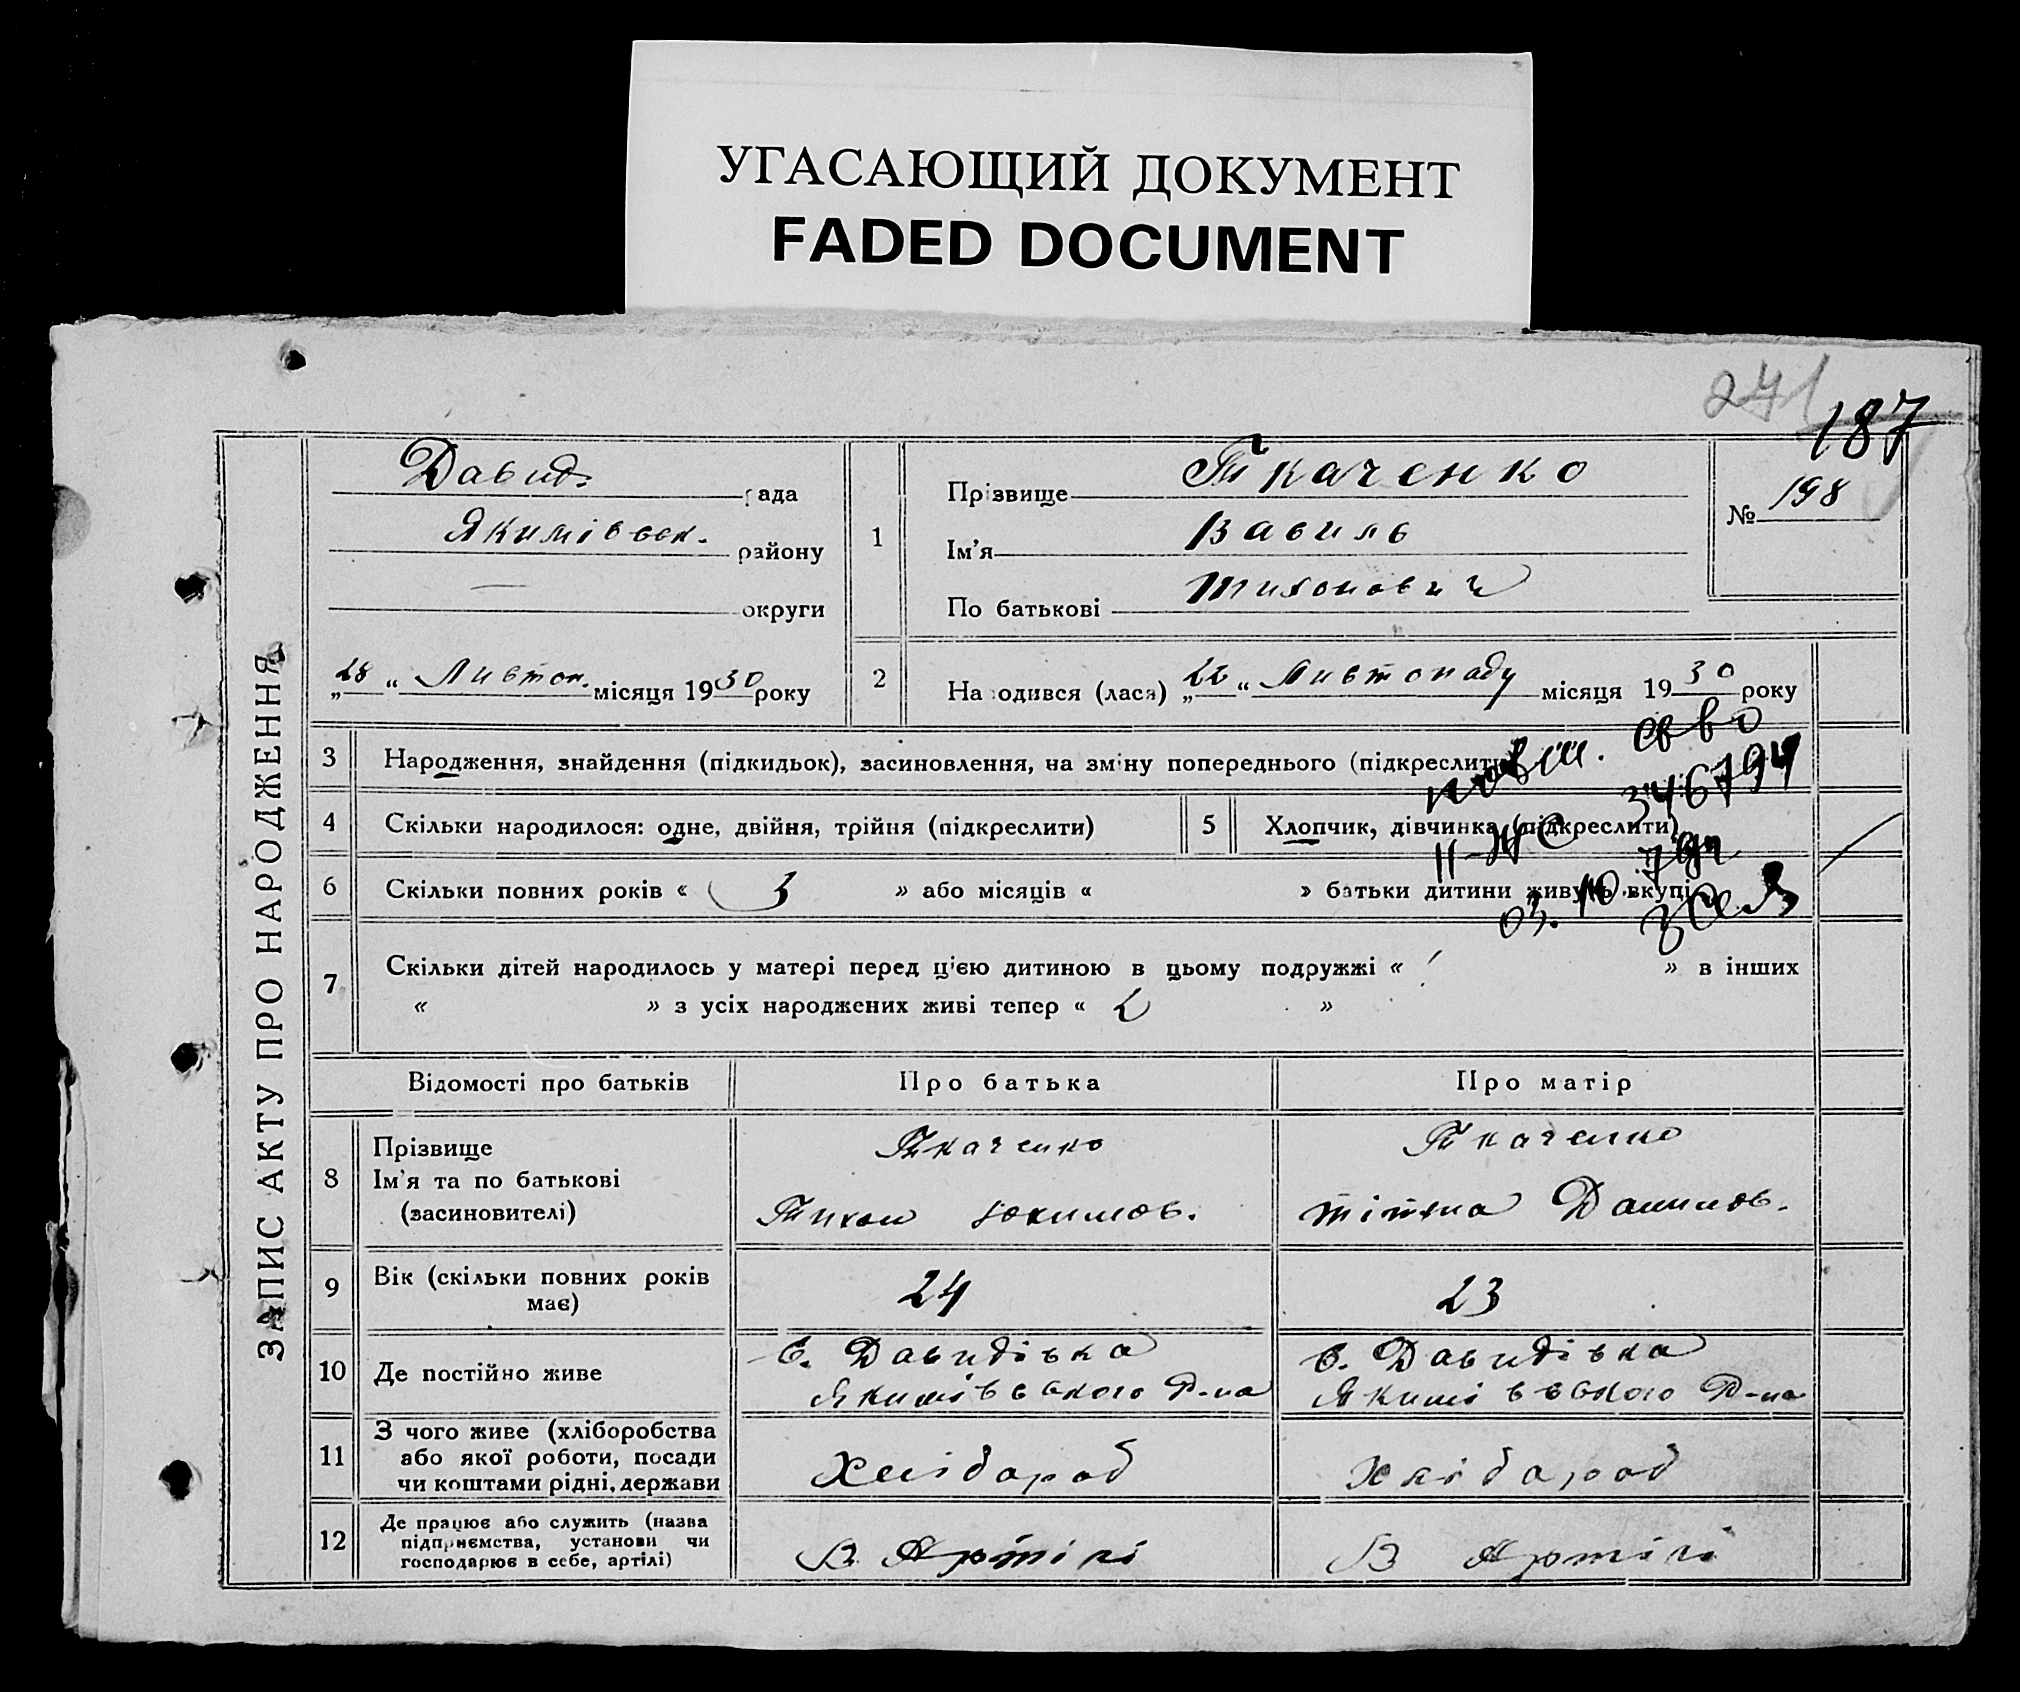 УГАСАЮЩИЙ ДОКУМЕНТ
FADED DOCUMENT
271
187
ЗАПИС АКТУ ПРО НАРОДЖЕННЯ
Давид. рада
Якимівськ. району
— округи
„28“ Листоп. місяця 1930 року
1
Прізвище Ткаченко
Ім'я Василь
По батькові Тихонович
№ 198
2 Народився (лася) „22“ Листопаду місяця 1930 року
3 Народження, знайдення (підкидьок), засиновлення, на зміну попереднього (підкреслити)
повт. св во
346794
4 Скільки народилося: одне, двійня, трійня (підкреслити)
5 Хлопчик, дівчинка (підкреслити)
II-ЖС
6 Скільки повних років « 3 » або місяців « » батьки дитини живуть вкупі
03. 10.
7 Скільки дітей народилось у матері перед цією дитиною в цьому подружжі « 1 » в інших
« » з усіх народжених живі тепер « 2 »
Відомості про батьків Про батька Про матір
8 Прізвище
Ім'я та по батькові
(засиновителі)
Ткаченко
Тихон Юхимов.
Ткаченко
Тітяна Данилов.
9 Вік (скільки повних років
має)
24
23
10 Де постійно живе
с. Давидівка
Якимівського Р-на
с. Давидівка
Якимівського Р-на
11 З чого живе (хліборобства
або якої роботи, посади
чи коштами рідні, держави
Хлібароб
Хлібароб
12 Де працює або служить (назва
підприємства, установи чи
господарює в себе, артілі)
В Артілі
В Артілі